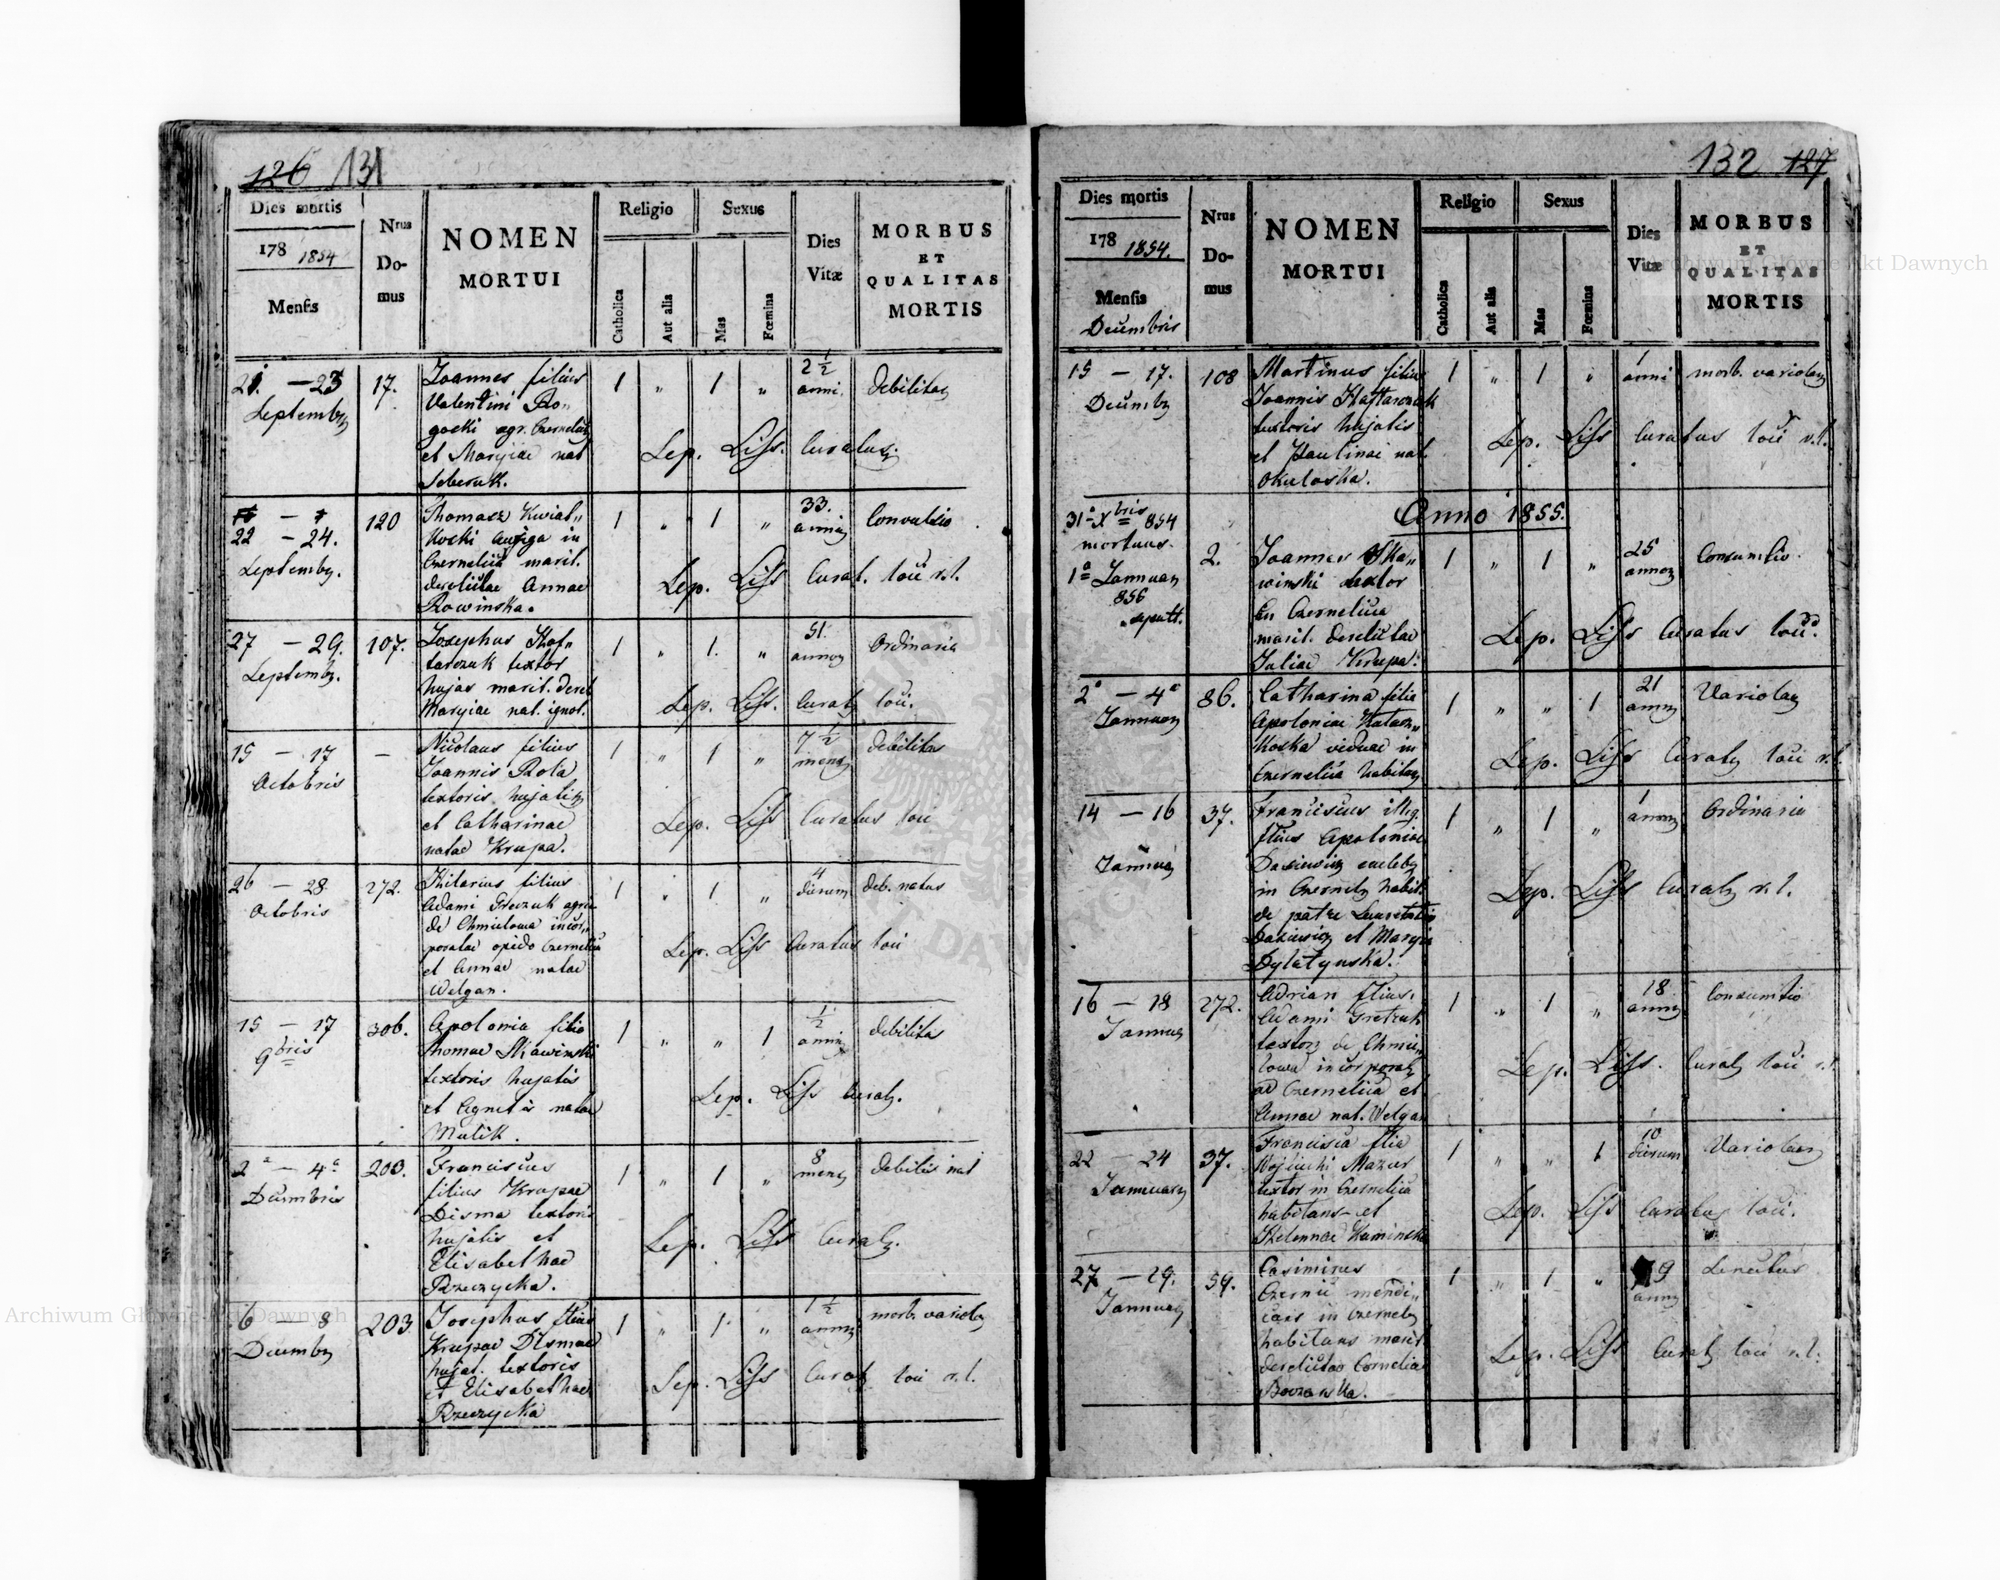 126 131
Dies mortis
178 1854
Mensis
Nrus
Do-
mus
NOMEN
MORTUI
Religio
Catholica
Aut alia
Sexus
Mas
Fœmina
Dies
Vitæ
MORBUS
ET
QUALITAS
MORTIS
21. — 23
Septembr
17.
Joannes filius
Valentini Ro„
gocki agr. Czernelic
et Maryiae nat
1 „ 1 „
2 1/2
anni
debilitas
Sep. Liss. Curatus.
22 — 24.
Septembr.
120
Thomasz Kwiat„
kocki auriga in
Czernelica marit.
derelictae Annae
Rowinska.
1 „ 1 „
33.
annor
Convulsio
Sep. Liss Curat. loci r.l.
27 — 29.
Septembr.
107.
Josephus Haf„
tarczuk textor
hujas marit. derel
Maryiae nat. ignot.
1 „ 1. „
51.
annor
Ordinaria
Sep. Liss. Curat loci.
15 — 17
Octobris
—
Nicolaus filius
Joannis Rola
textoris hujatis
et Catharinae
natae Krupa.
1 „ 1 „
7 1/2
mens
debilitas
Sep. Liss Curatus loci
26 — 28
Octobris
272.
Hilarius filius
Adami Greczuk agric
de Chmielowa incor„
poratae opido Czernelica
et Annae natae
Welgan.
1 „ 1 „
4
dierum
deb. natus
Sep. Liss Curatus loci
15 — 17
9bris
306.
Apolonia filia
Thomae Skawinski
textoris hujatis
et Agnetis natae
Matik.
1 „ „ 1
1/2
anni
debilitas
Sep. Liss Curat.
2a — 4a
Decembris
203.
Franciscus
filius Krupae
Disma textoris
hujatis et
Elisabethae
Rzeczycka.
1 „ 1 „
8
mens
debilis nat
Sep. Liss Curat.
6 — 8
Decembr
203
Josephus filius
Krupae Dismae
hujat. textoris
et Elisabethae
Rzeczycka
1 „ 1 „
1 1/2
anni
morb. variolar
Sep. Liss Curat loci r.l.
132 127
Dies mortis
178 1854.
Mensis
Decembris
Nrus
Do-
mus
NOMEN
MORTUI
Religio
Catholica
Aut alia
Sexus
Mas
Fœmina
Dies
Vitæ
MORBUS
ET
QUALITAS
MORTIS
15 — 17.
Decembr
108
Martinus filius
Joannis Haftarczuk
textoris hujatis
et Paulinae nat.
Okulaska.
1 „ 1 „
1
anni
morb. variolar
Sep. Liss Curatus loci r.l.
Anno 1855.
31a Xbris 854
mortuus.
1a Januar
855
sepult.
2.
Joannes Ska„
winski textor
in Czernelica
marit. derelictae
Juliae Krupa.
1 „ 1 „
25
annor
Consumtio.
Sep. Liss Curatus loci.
2a — 4a
Januar
86.
Catharina filia
Apoloniae
viduae in
Czernelica habitan
1 „ „ 1
21
annor
Variolar
Sep. Liss Curat loci r.l.
14 — 16
Januar
37.
Franciscus illeg.
filius Apoloniae
Daziewicz caeleb
in Czernelic habit.
de patre Laurentio
Daziewicz et Maryia
Dylatynska.
1 „ 1 „
1
anni
Ordinaria
Sep. Liss Curat r.l.
16 — 18
Januar
272.
Adrian filius
Adami Gretczuk
textor de Chmie„
lowa incorporat
ad Czernelica et
Annae nat. Welgan
1 „ 1 „
18
annor
Consumtio
Sep. Liss. Curat loci r.l.
22 — 24
Januar
37.
Francisca filia
Wojciechi Mazur
textor in Czernelica
habitans et
Helennae Kaminska
1 „ „ 1
10
dierum
Variolar
Sep. Liss Curatus loci.
27 — 29.
Januar
59.
Casimirus
Czernic mendi„
cans in Czernelic
habitans marit
derelictae Corneliae
1 „ 1 „
annor
Senectus
Sep. Liss Curat loci r.l.
Archiwum Główne Akt Dawnych
Archiwum Główne Akt Dawnych